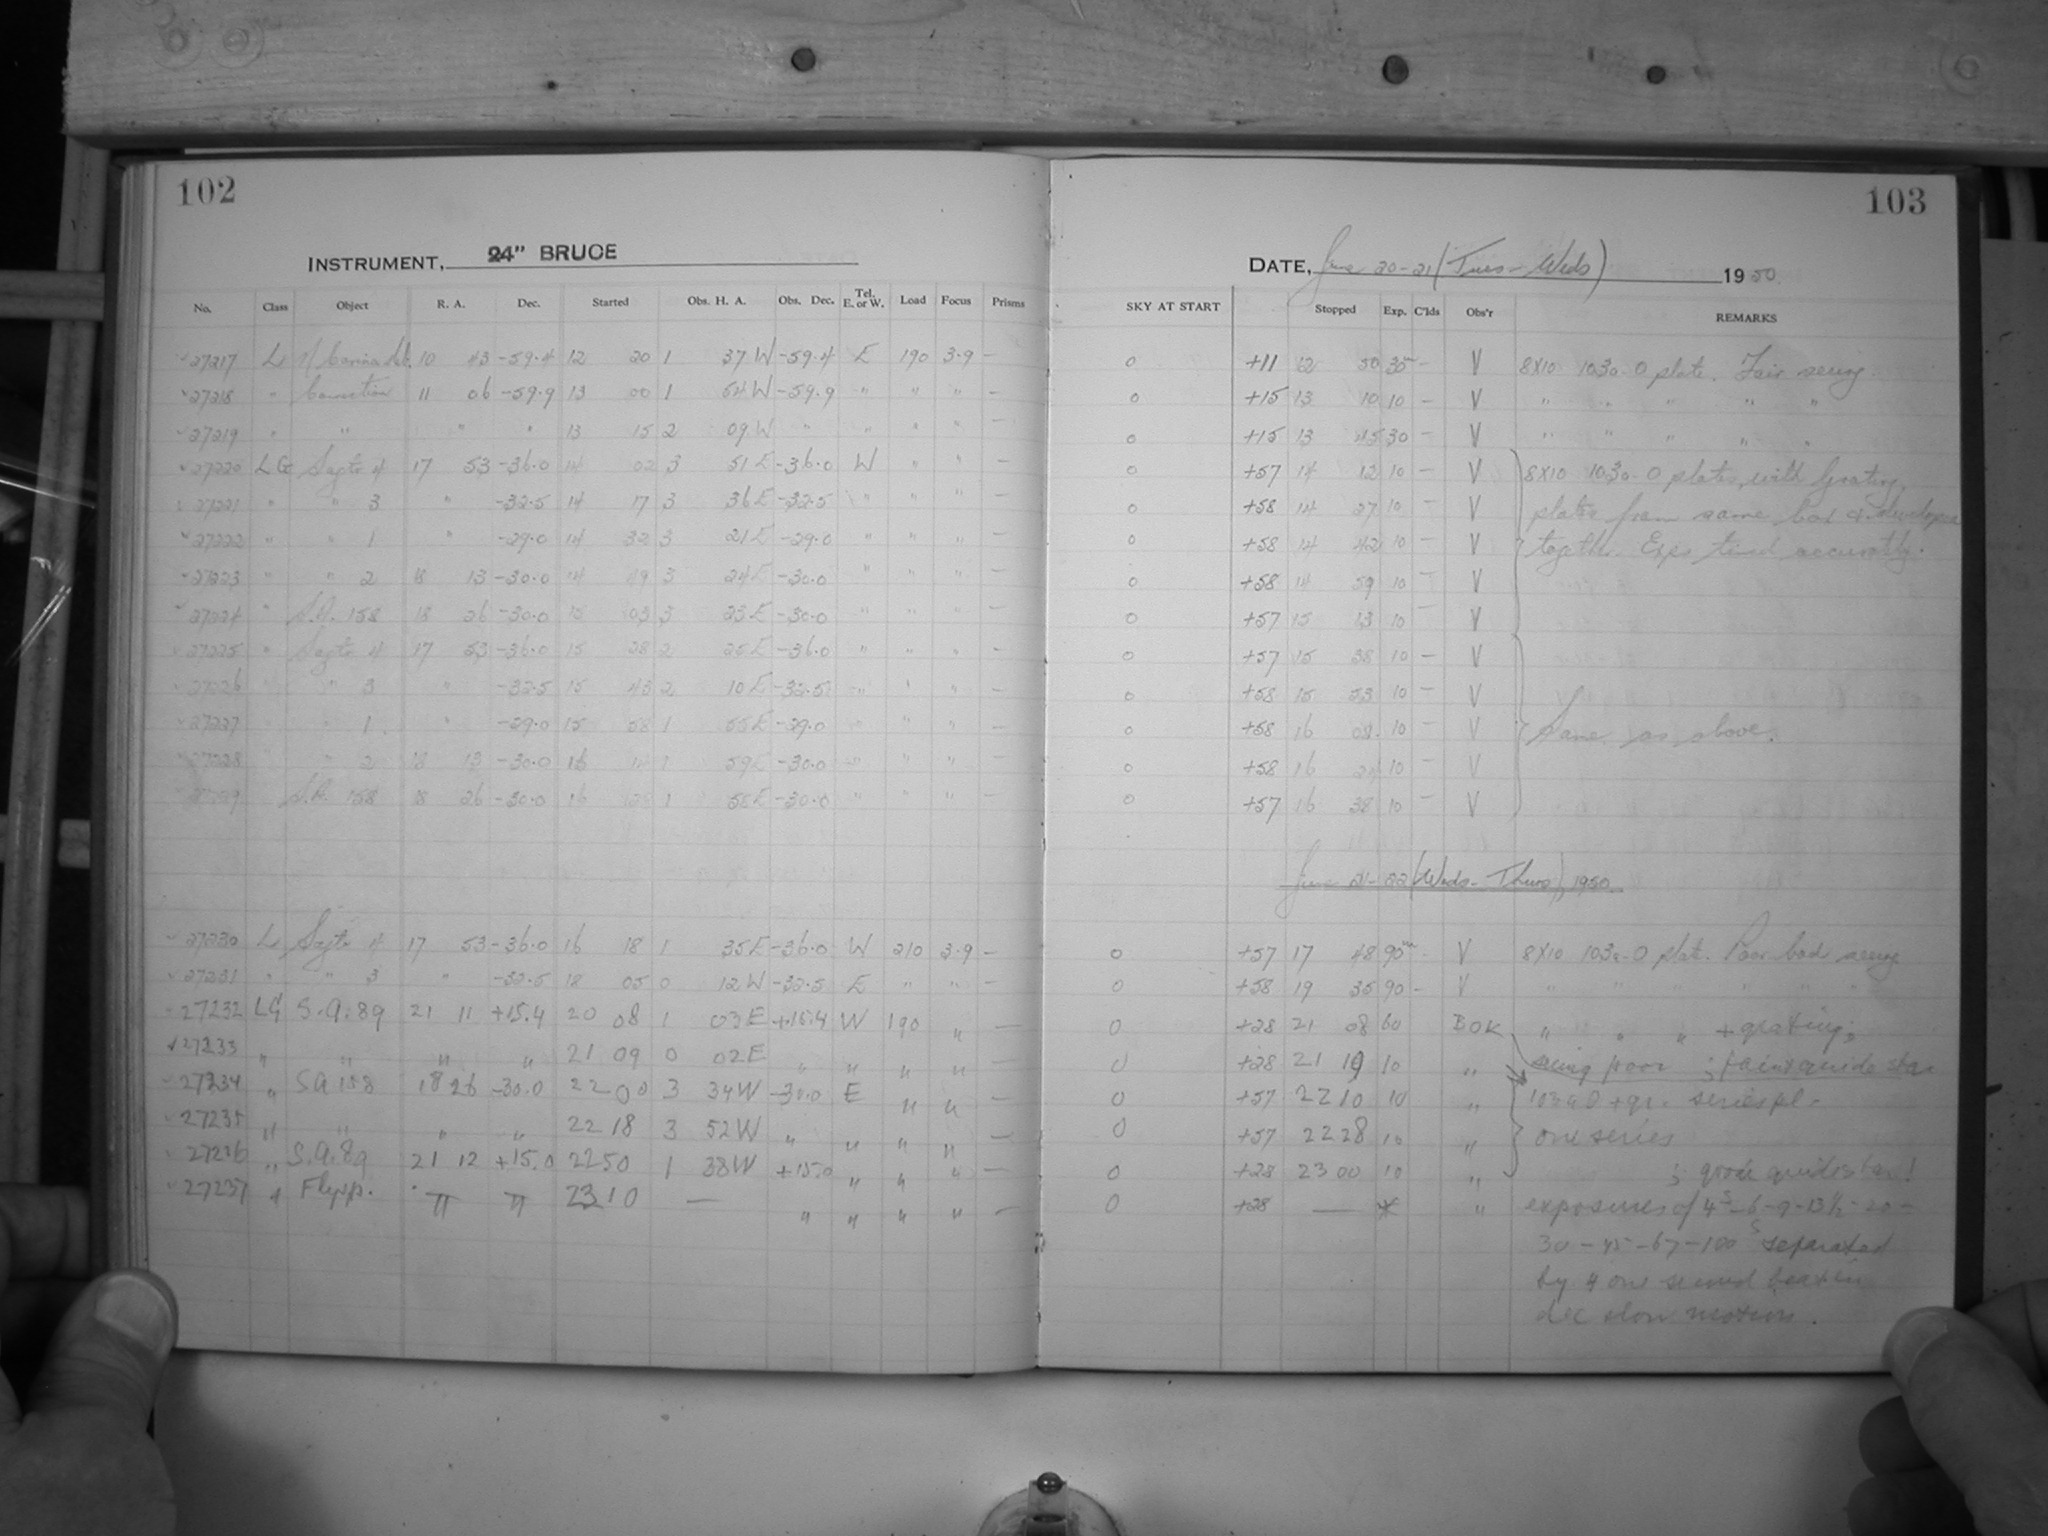 102
103
INSTRUMENT, 24" BRUCE
DATE, June 20-21 (Tues - Weds) 1950
No. Class Object R. A. Dec. Started Obs. H. A. Obs. Dec. Tel. E. or W. Load Focus Prisms SKY AT START Stopped Exp. C'lds Obs'r REMARKS
27217 L η Carina 10 43 -59.4 12 20 1 37 W -59.4 E 190 3.9 — 0 +11 12 50 30m - V 8x10 103a-O plate. Fair seeing
27218 " 11 06 -59.9 13 00 1 54 W -59.9 " " " — 0 +15 13 10 10 - V " " " " "
27219 " " " " 13 15 2 09 W " " " " — 0 +15 13 45 30 - V " " " " "
27220 LG Sagtr 4 17 53 -36.0 14 02 3 51 E -36.0 W " " — 0 +57 14 12 10 - V 8x10 103a-O plates, with Grating,
27221 " " 3 " -32.5 14 17 3 36 E -32.5 " " " — 0 +58 14 27 10 - V plates from same box & developed
27222 " " 1 " -29.0 14 32 3 21 E -29.0 " " " — 0 +58 14 42 10 - V together. Exps timed accurately.
27223 " " 2 18 13 -30.0 14 49 3 24 E -30.0 " " " — 0 +58 14 59 10 - V
27224 " S.A. 158 18 26 -30.0 15 03 3 23 E -30.0 " " " — 0 +57 15 13 10 - V
27225 " Sagtr 4 17 53 -36.0 15 28 2 25 E -36.0 " " " — 0 +57 15 38 10 - V
27226 " " 3 " -32.5 15 43 2 10 E -32.5 " " " — 0 +58 15 53 10 - V
27227 " " 1 " -29.0 15 58 1 55 E -29.0 " " " — 0 +58 16 08 10 - V Same as above.
27228 " " 2 18 13 -30.0 16 1 59 E -30.0 " " " — 0 +58 16 10 - V
27229 S.A. 158 18 26 -30.0 16 28 1 58 E -30.0 " " " — 0 +57 16 38 10 - V
June 21-22 (Weds - Thurs), 1950
27230 L Sagtr 4 17 53 -36.0 16 18 1 35 E -36.0 W 210 3.9 — 0 +57 17 48 90m - V 8x10 103a-O plate. Poor bad seeing
27231 " " 3 " -32.5 18 05 0 12 W -32.5 E " " — 0 +58 19 35 90 - V " " " " " "
27232 LG S.A. 89 21 11 +15.4 20 08 1 03 E +15.4 W 190 " 0 +28 21 08 60 BOK " " " + grating;
27233 " " " " 21 09 0 02 E " " " " 0 +28 21 19 10 " seeing poor ; faint guide star
27234 " SA 158 18 26 -30.0 22 00 3 34 W -30.0 E " " — 0 +57 22 10 10 " 103a O + gr. series pl-
27235 " " " " 22 18 3 52 W " " " " — 0 +57 22 28 10 " one series
27236 " S.A. 89 21 12 +15.0 22 50 1 38 W +15.0 " " " — 0 +28 23 00 10 " ; good guide star!
27237 " " " 23 10 — " " " " — 0 +28 — * " exposures of 4s-6-9-13½-20-
30-45-67-100s separated
by 4 one second beats in
dec slow motion.